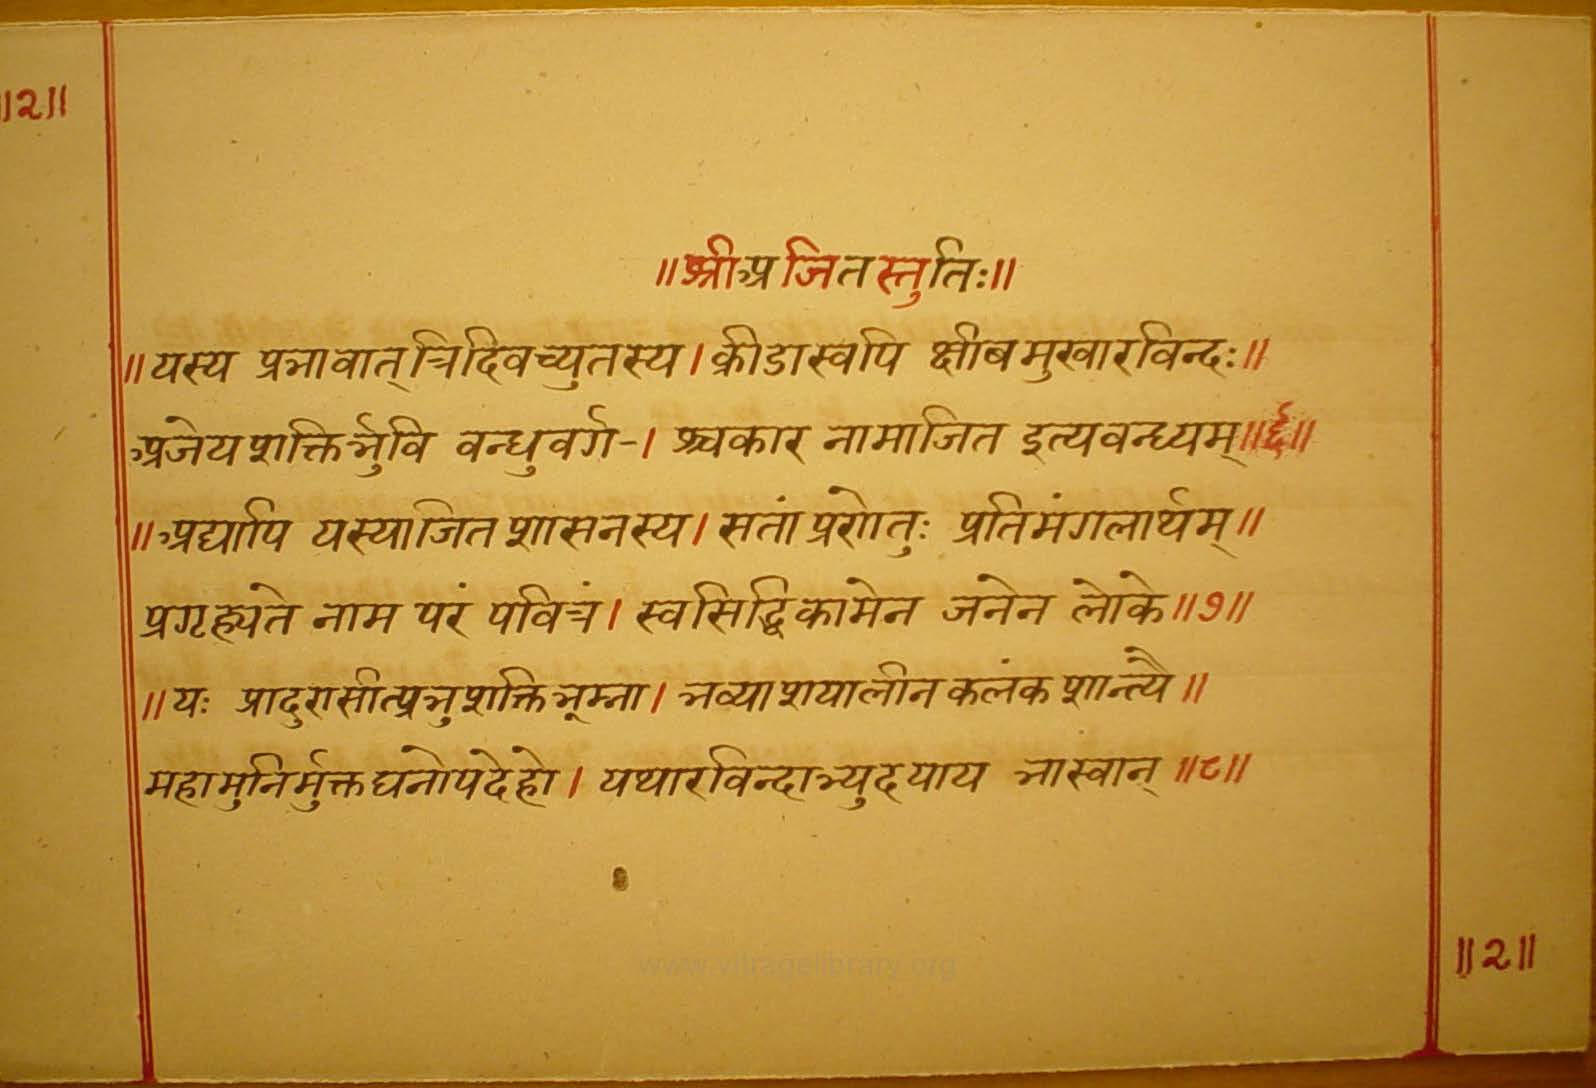 ॥२॥
॥श्रीअजितस्तुतिः॥
॥यस्य प्रभावात् त्रिदिवच्युतस्य। क्रीडास्वपि क्षीबमुखारविन्दः॥
अजेयशक्तिर्भुवि वन्धुवर्ग-। श्चकार नामाजित इत्यवन्ध्यम्॥६॥
॥अद्यापि यस्याजितशासनस्य। सतां प्रणेतुः प्रतिमंगलार्थम्॥
प्रगृह्यते नाम परं पवित्रं। स्वसिद्धिकामेन जनेन लोके॥७॥
॥यः प्रादुरासीत्प्रभुशक्तिभूम्ना। भव्याशयालीनकलंकशान्त्यै॥
महामुनिर्मुक्तघनोपदेहो। यथारविन्दाभ्युदयाय भास्वान्॥८॥
॥२॥
www.vitragelibrary.org